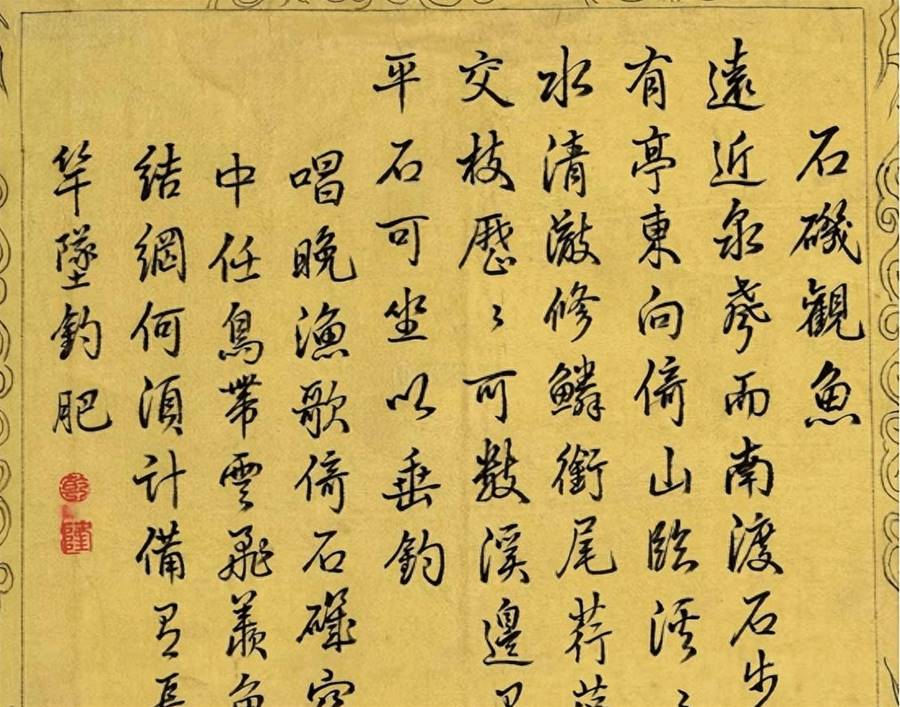 石磯觀魚
遠近泉聲而南渡石步
有亭東向倚山臨溪
水清澈修鱗銜尾荇藻
交枝歷〻可數溪邊有
平石可坐以垂釣
唱晚漁歌傍石磯空
中任鳥帶雲飛羨魚
結網何須計備有長
竿墜釣肥